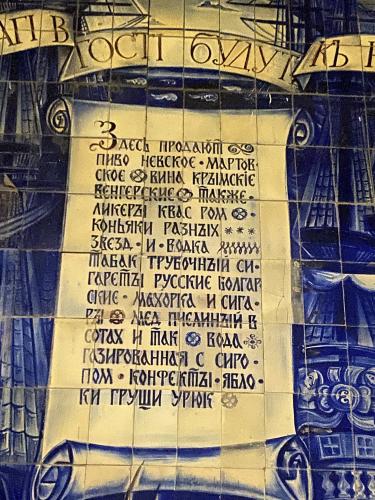 АГИ В ГОСТІ БУДУТ КЪ Н
Здесь продают
пиво невское • мартов
ское вина крымскіе
венгерские также •
ликеры квас ром •
коньяки разных * * *
звезд • и • водка
табак трубочный си •
гареты русские болгар
ские • махорка и сига •
ры мед пчелиный в
сотах и так вода
газированная с сиро •
пом • конфекты • ябло •
ки груши урюк